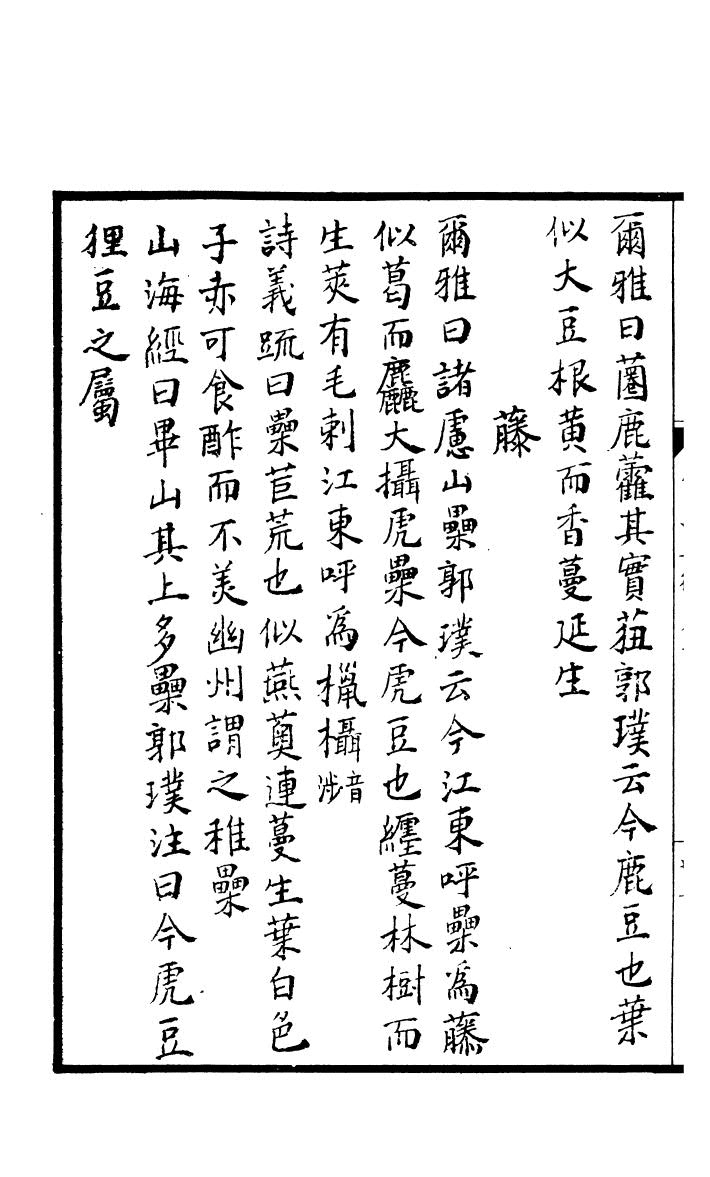 爾雅曰蔨鹿藿其實莥郭璞云今鹿豆也葉
似大豆根黄而香蔓延生
藤
爾雅曰諸慮山櫐郭璞云今江東呼櫐為藤
似葛而麤大攝虎櫐今虎豆也纒蔓林樹而
生莢有毛刺江東呼為欇音涉
詩義疏曰櫐苣荒也似燕薁連蔓生葉白色
子赤可食酢而不美幽州謂之稚櫐
山海經曰畢山其上多櫐郭璞注曰今虎豆
狸豆之屬